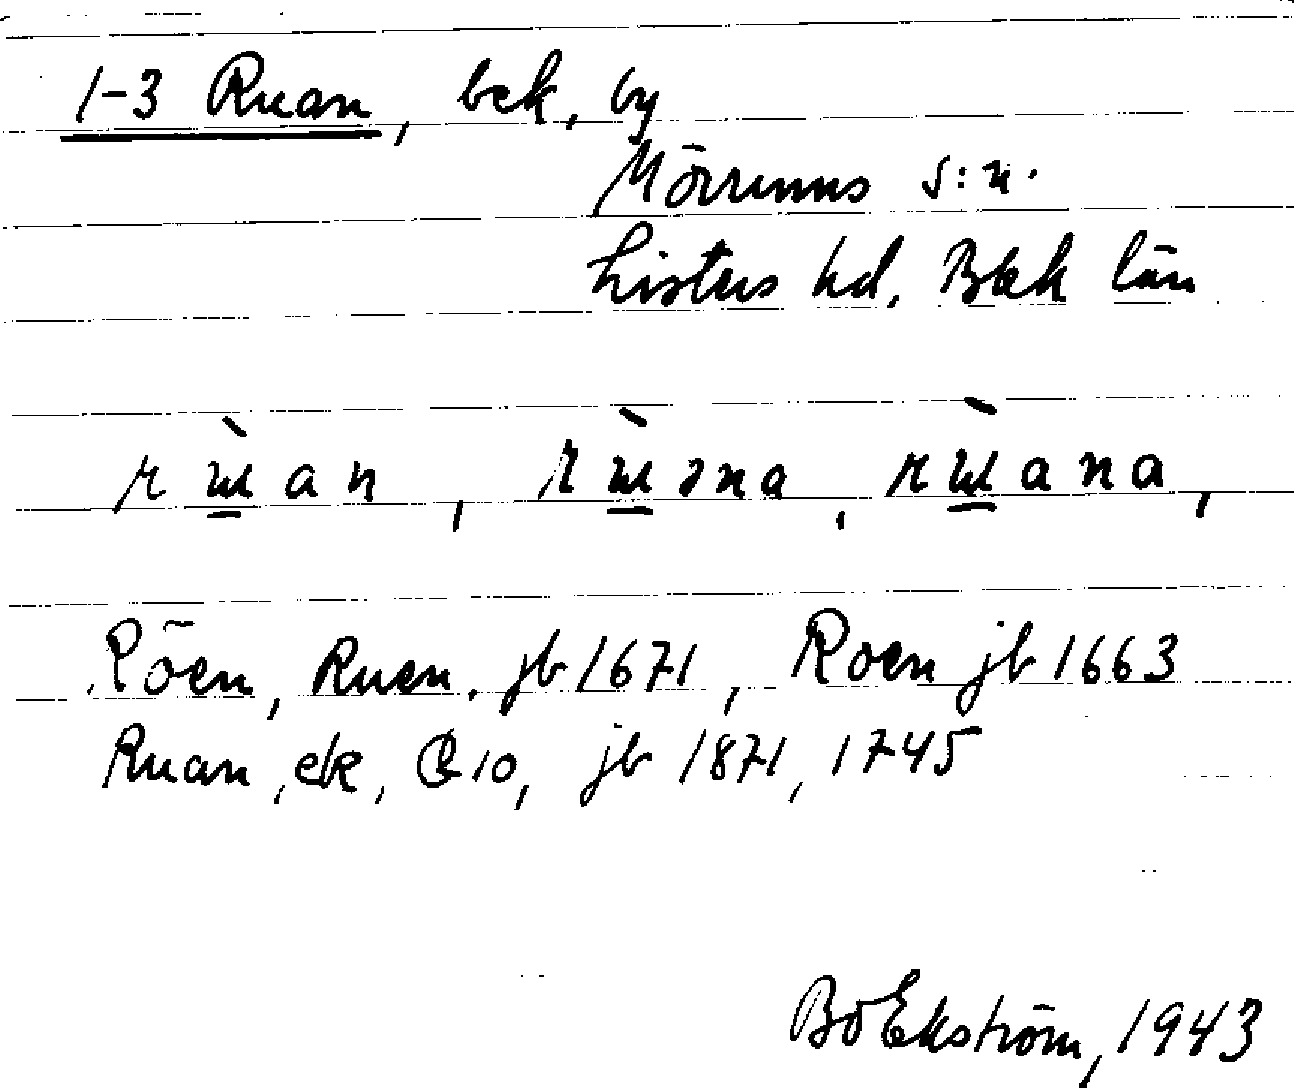 1-3 Ruan, bek, by
Mörrums s:n.
Listers hd, Blek län
rɯ̀an, rɯ̀əna, rɯ̀ana,
Röen, Ruen, jb 1671, Roen jb 1663
Ruan, ek, 10, jb 1871, 1745
Bo Ekström, 1943